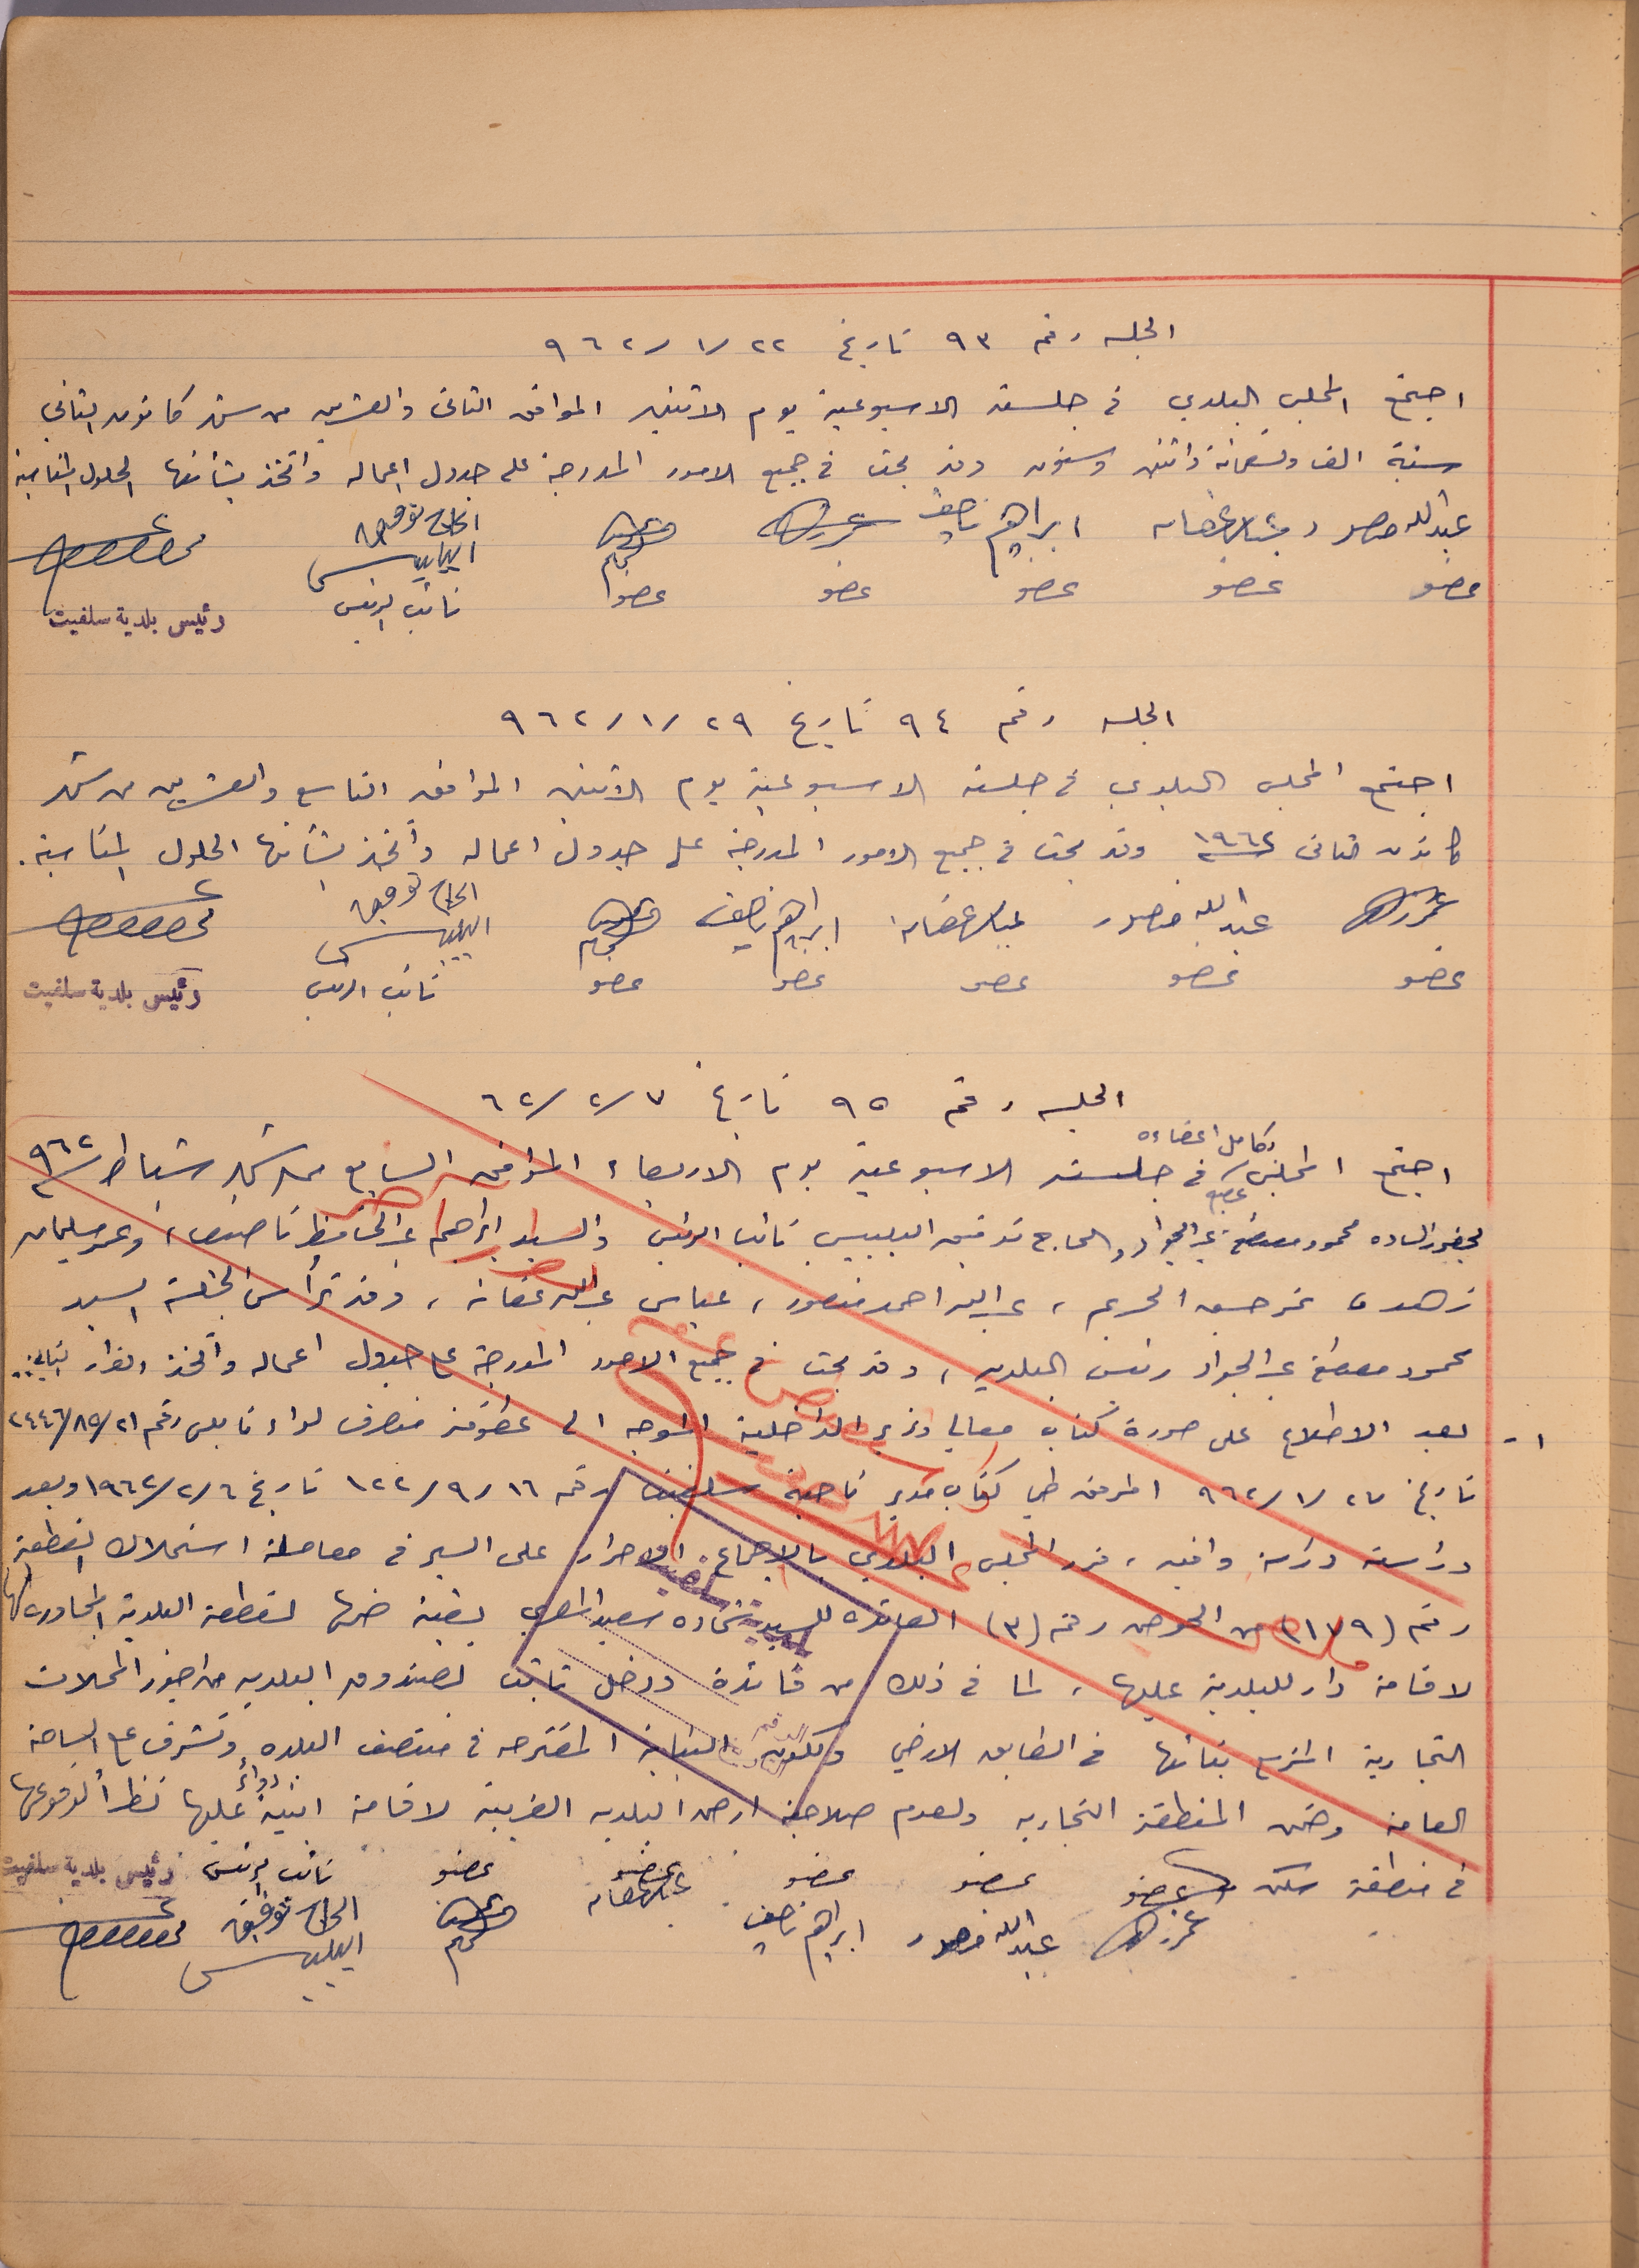 الجلسه رقم ٩٣ تاريخ ٢٢ /١/ ٩٦٢
اجتمع المجلس البلدي في جلسته الاسبوعية يوم الاثنين الموافق الثاني والعشرين من شهر كانون الثاني
سنة الف وتسعمائة واثنين وستون وقد بحث في جميع الامور المدرجة على جدول اعماله واتخذ بشأنها الحلول المناسبة
عبدالله منصور عباس عفانه ابراهيم ناصيف الحاج توفيق البلبيسي
عضو عضو عضو عضو عضو نائب الرئيس رئيس بلدية سلفيت
الجلسه رقم ٩٤ تاريخ ٢٩ /١/ ٩٦٢
اجتمع المجلس البلدي في جلسته الاسبوعية يوم الاثنين الموافق التاسع والعشرين من شهر
كانون ثاني ١٩٦٢ وقد بحث في جميع الامور المدرجة على جدول اعماله واتخذ بشأنها الحلول المناسبة.
عبدالله منصور عباس عفانه ابراهيم ناصيف الحاج توفيق البلبيسي
عضو عضو عضو عضو عضو نائب الرئيس رئيس بلدية سلفيت
الجلسه رقم ٩٥ تاريخ ٧ /٢/ ٦٢
بكامل اعضاءه
اجتمع المجلس في جلسته الاسبوعية يوم الاربعاء الموافق السابع من شهر شباط ٩٦٢
بحضور الساده محمود مصطفى عبد الجواد والحاج توفيق البلبيسي نائب الرئيس والسيد ابراهيم عبد الحافظ ناصيف، وعمر سليمان
زهد، عمر حسن الحريم، عبدالله احمد منصور، عباس عبدالله عفانه، وقد ترأس الجلسة السيد
محمود مصطفى عبد الجواد رئيس البلديه، وقد بحث في جميع الامور المدرجة على جدول اعماله واتخذ القرار التالي:
١- بعد الاطلاع على صورة كتاب معالي وزير الداخلية الموجه الى عطوفة متصرف لواء نابلس رقم ٢١ /٨٥/ ٢٤٤٦
تاريخ ٢٧ /١/ ٩٦٢ المرفق طي كتاب مدير ناحية سلفيت رقم ١٦ /٩/ ١٢٢ تاريخ ٦ /٢/ ١٩٦٢ وبعد
دراسته دراسة وافيه، قرر المجلس البلدي بالاجماع الاصرار على السير في معاملة استملاك القطعة
رقم (١٧٩) من الحوض رقم (٣) العائده للسيد شحاده سعيد المصري بغية ضمها لقطعة البلدية المجاوره لها
لاقامة دار للبلدية عليها، لما في ذلك من فائدة ودخل ثابت لصندوق البلديه من اجور المحلات
التجارية المزمع بنائها في الطابق الارضي ولكون البناية المقترحه في منتصف البلده وتشرف على الساحة
العامه وضمن المنطقة التجاريه ولعدم صلاحية ارض البلديه الغربية لاقامة ابنية عليها نظرا لوقوعها
في منطقة سكن عضو عضو عضو عضو عضو نائب الرئيس رئيس بلدية سلفيت
عبدالله منصور ابراهيم ناصيف عباس عفانه الحاج توفيق البلبيسي